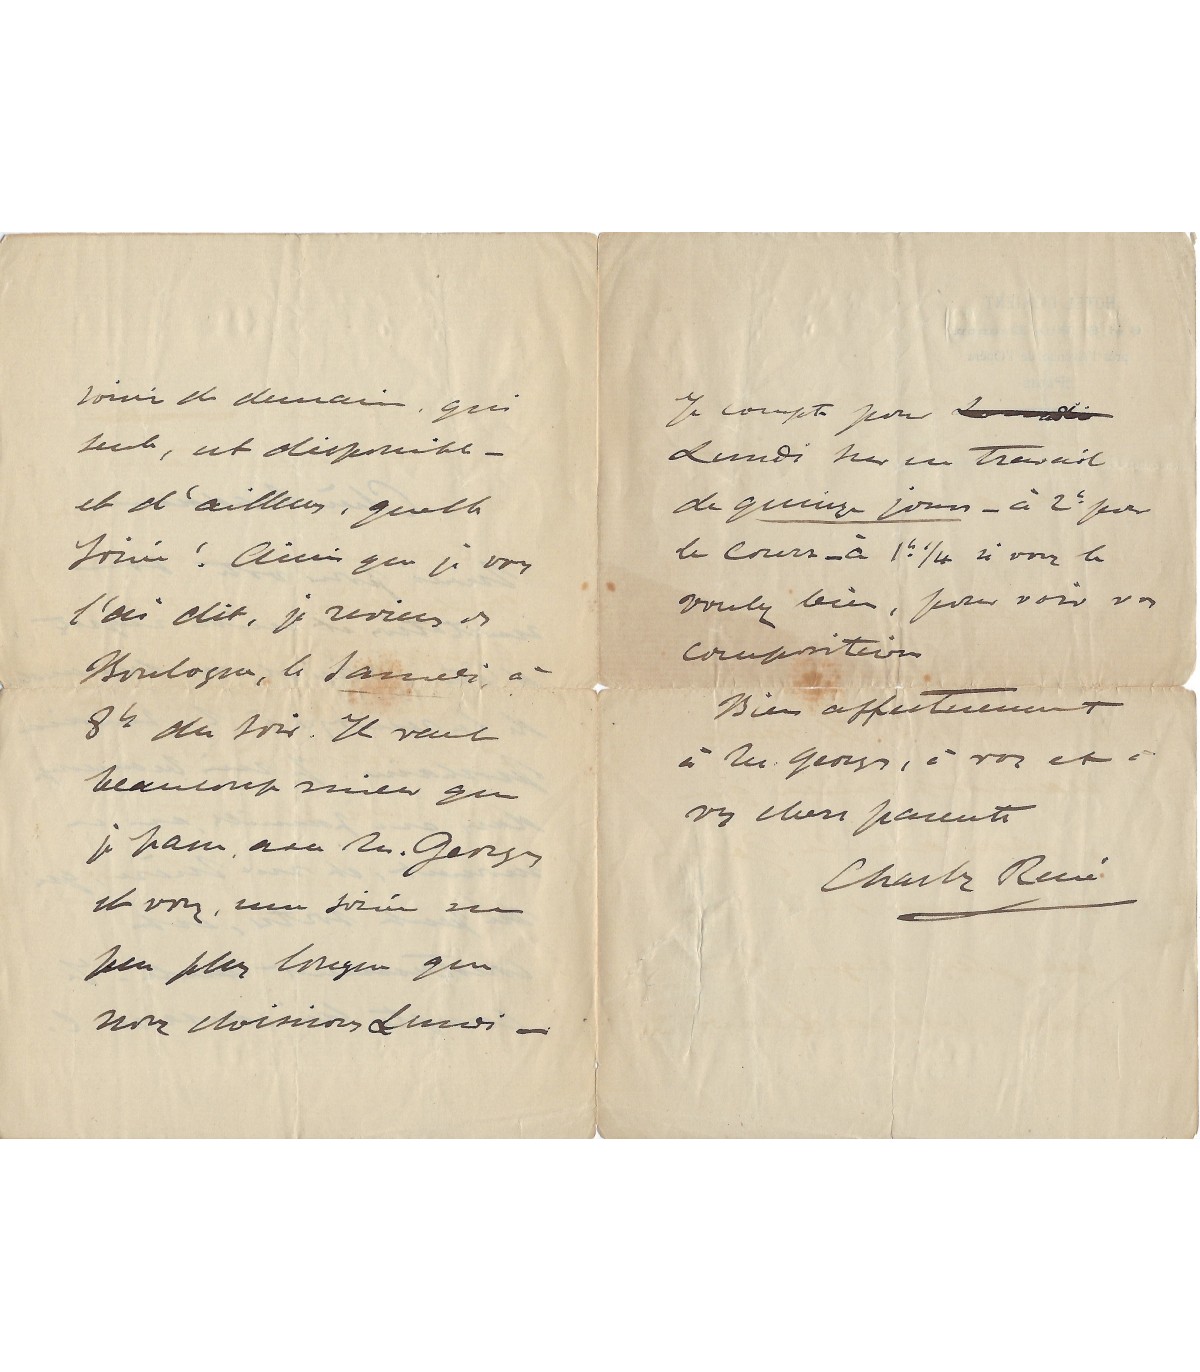 soirée de demain, qui
seule, est disponible –
et d'ailleurs, quelle
soirée ! Ainsi que je vous
l'ai dit, je reviens de
Boulogne, le Samedi, à
8h du soir. Il vaut
beaucoup mieux que
je passe, avec M. Georges
et vous, une soirée un
peu plus longue que
nous choisirons Lundi –
Je compte pour Lundi
Lundi sur un travail
de quinze jours – à 2h pour
le cours – à 1h 1/4 si vous le
voulez bien, pour voir vos
compositions
Bien affectueusement
à M. Georges, à vous et à
vos chers parents
Charles René